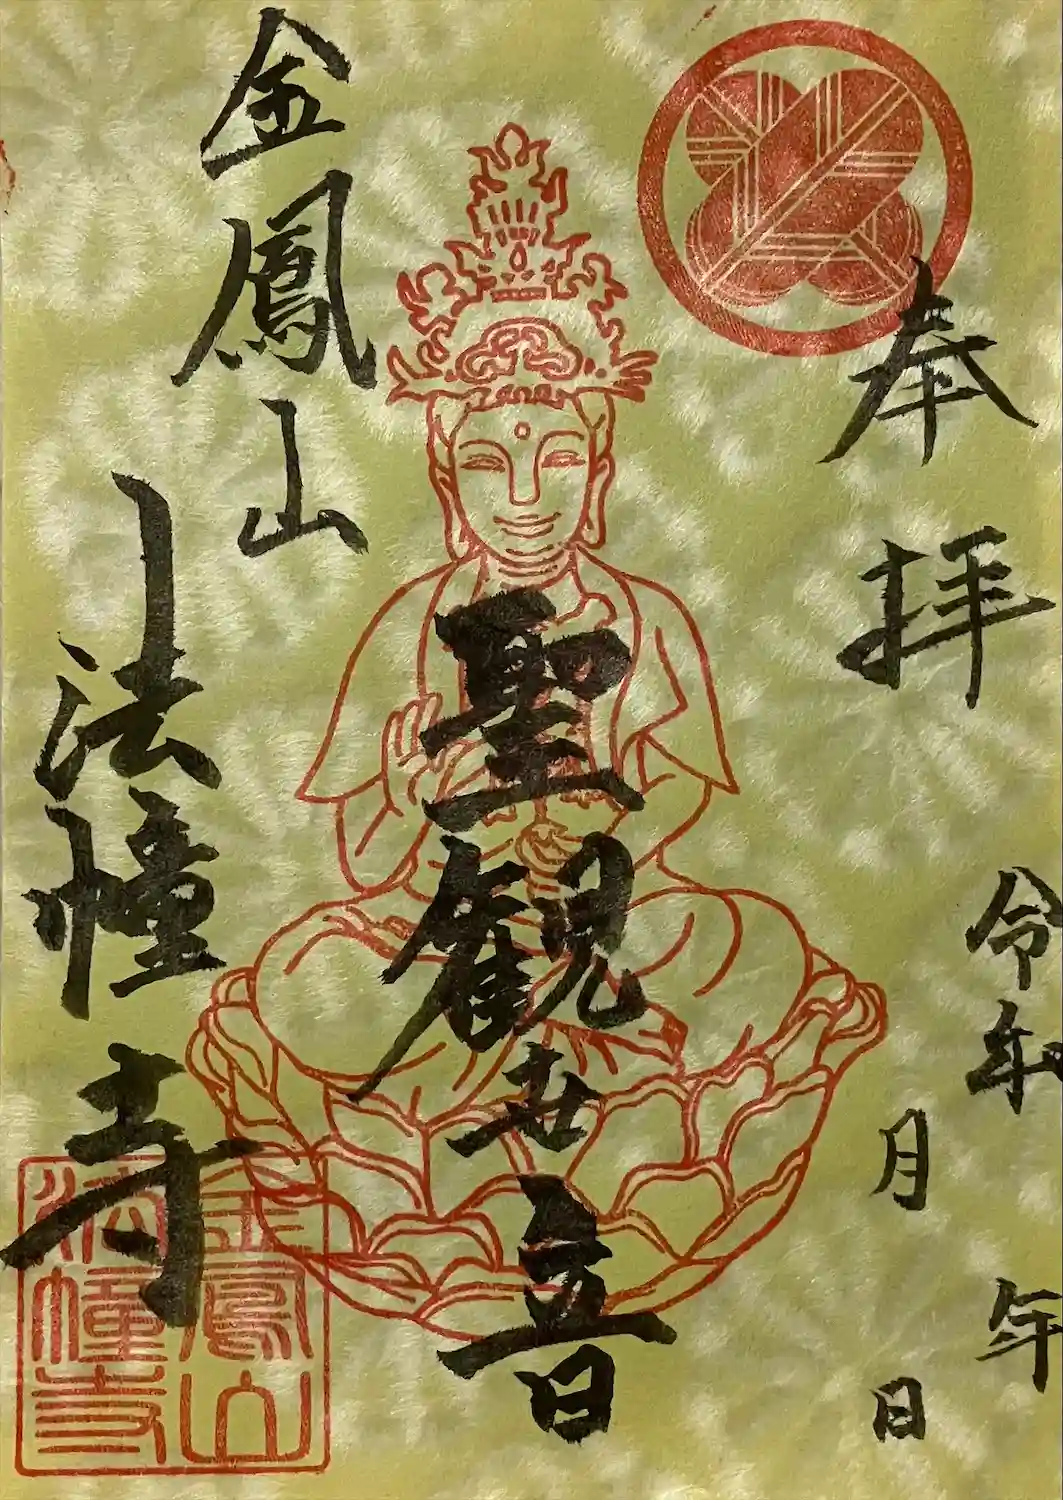 奉拝
令和 年
月 日
聖観世音
金鳳山
法幢寺
金鳳山
法幢寺